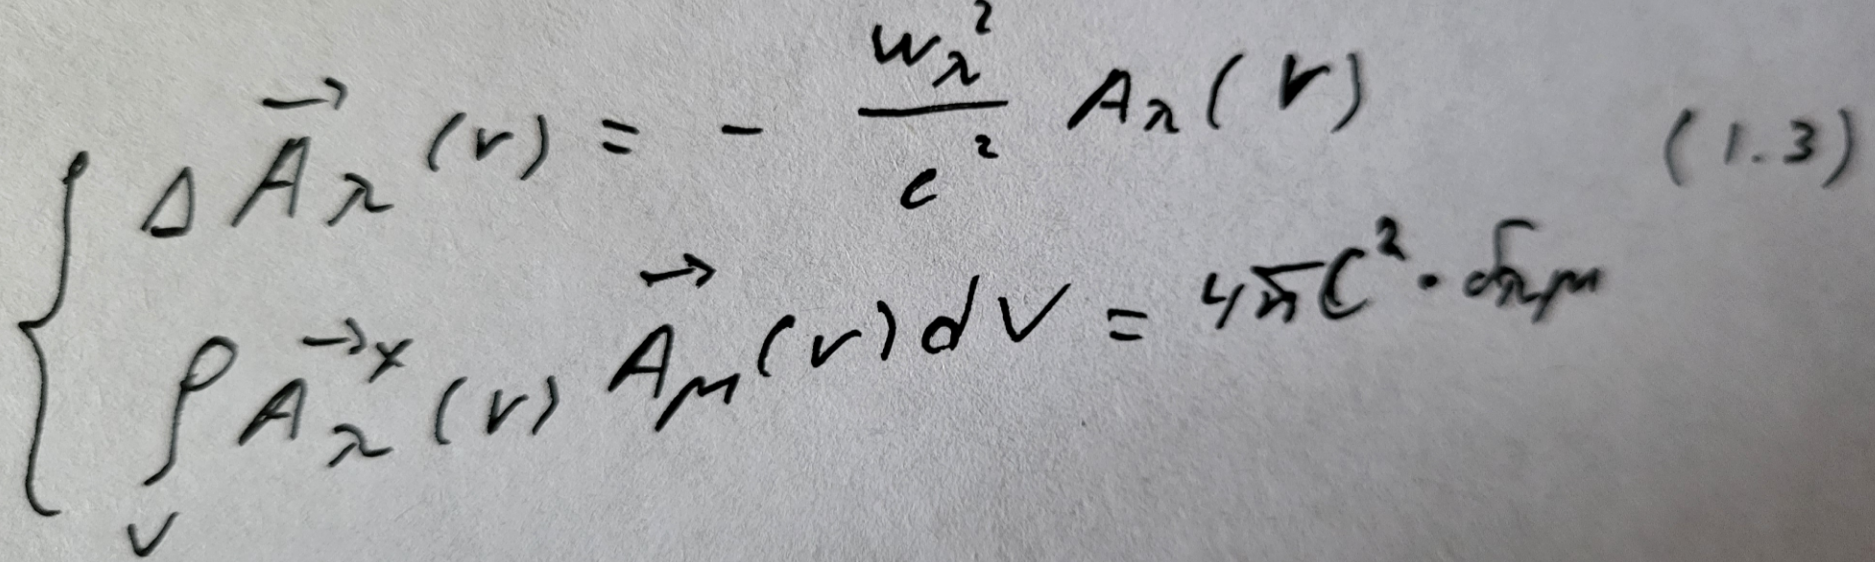 Δ \vec{A}_λ (r) = - \frac{ω_λ^2}{c^2} A_λ (r) (1.3)
∫_V \vec{A}_λ^* (r) \vec{A}_μ (r) dV = 4πc^2 · δ_{λμ}